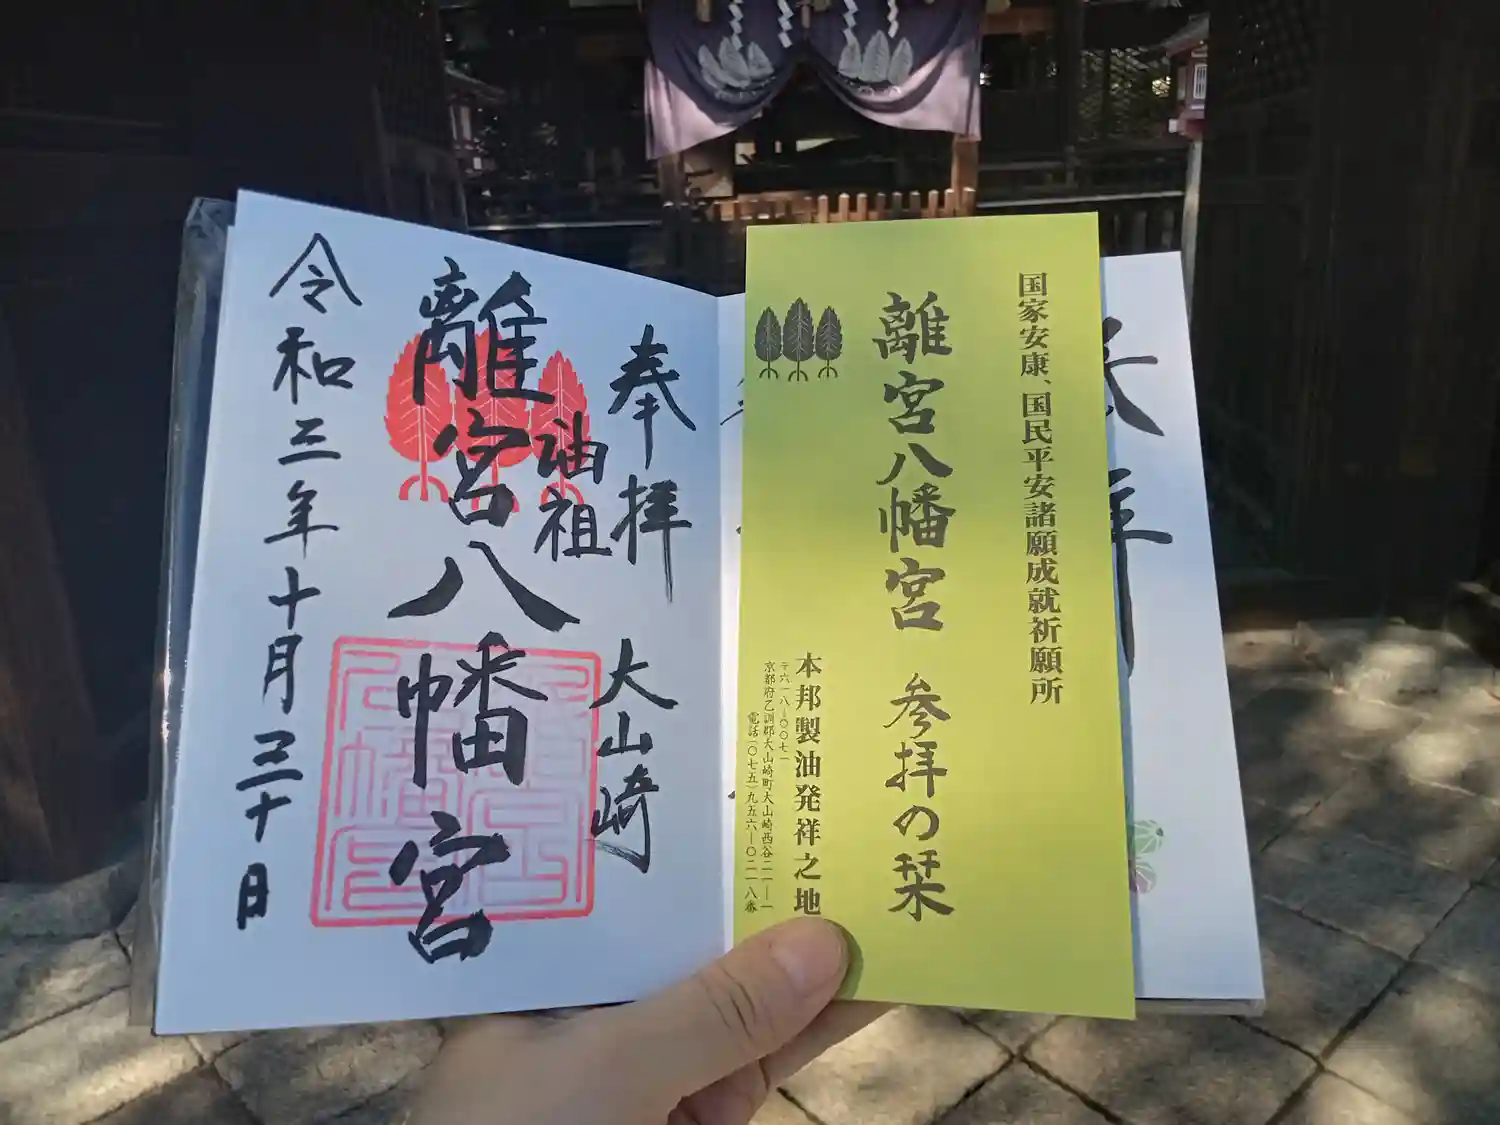 奉拝
大山崎
油祖
離宮八幡宮
令和三年十月三十日
国家安康、国民平安諸願成就祈願所
離宮八幡宮 参拝の栞
本邦製油発祥之地
〒六一八―〇〇七一
京都府乙訓郡大山崎町大山崎西谷二一―一
電話(〇七五)九五六―〇二一八番